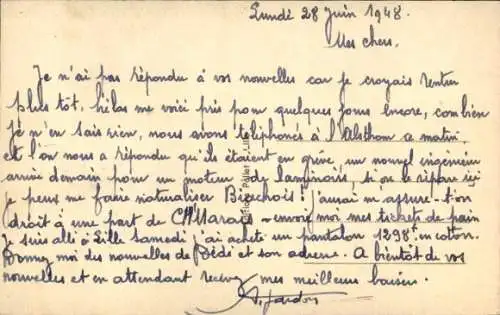 Lundi 28 Juin 1948.
Mes chers.
Je n'ai pas répondu à vos nouvelles car je croyais rentrer
plus tôt, hélas me voici pris pour quelques jours encore, combien
je n'en sais rien, nous avons téléphonés à l'Alsthom ce matin
et l'on nous a répondu qu'ils étaient en grève, un nouvel ingénieur
arrive demain pour un moteur de laminoir, si on le répare ici
je peux me faire naturaliser J'aurai m'assure-t-on
droit à une part de Marais - envoyez moi mes tickets de pain
Je suis allé à Lille samedi j'ai acheté un pantalon 1298f en coton.
Donnez moi des nouvelles de Dédé et son adresse. A bientôt de vos
nouvelles et en attendant recevez mes meilleurs baisers.